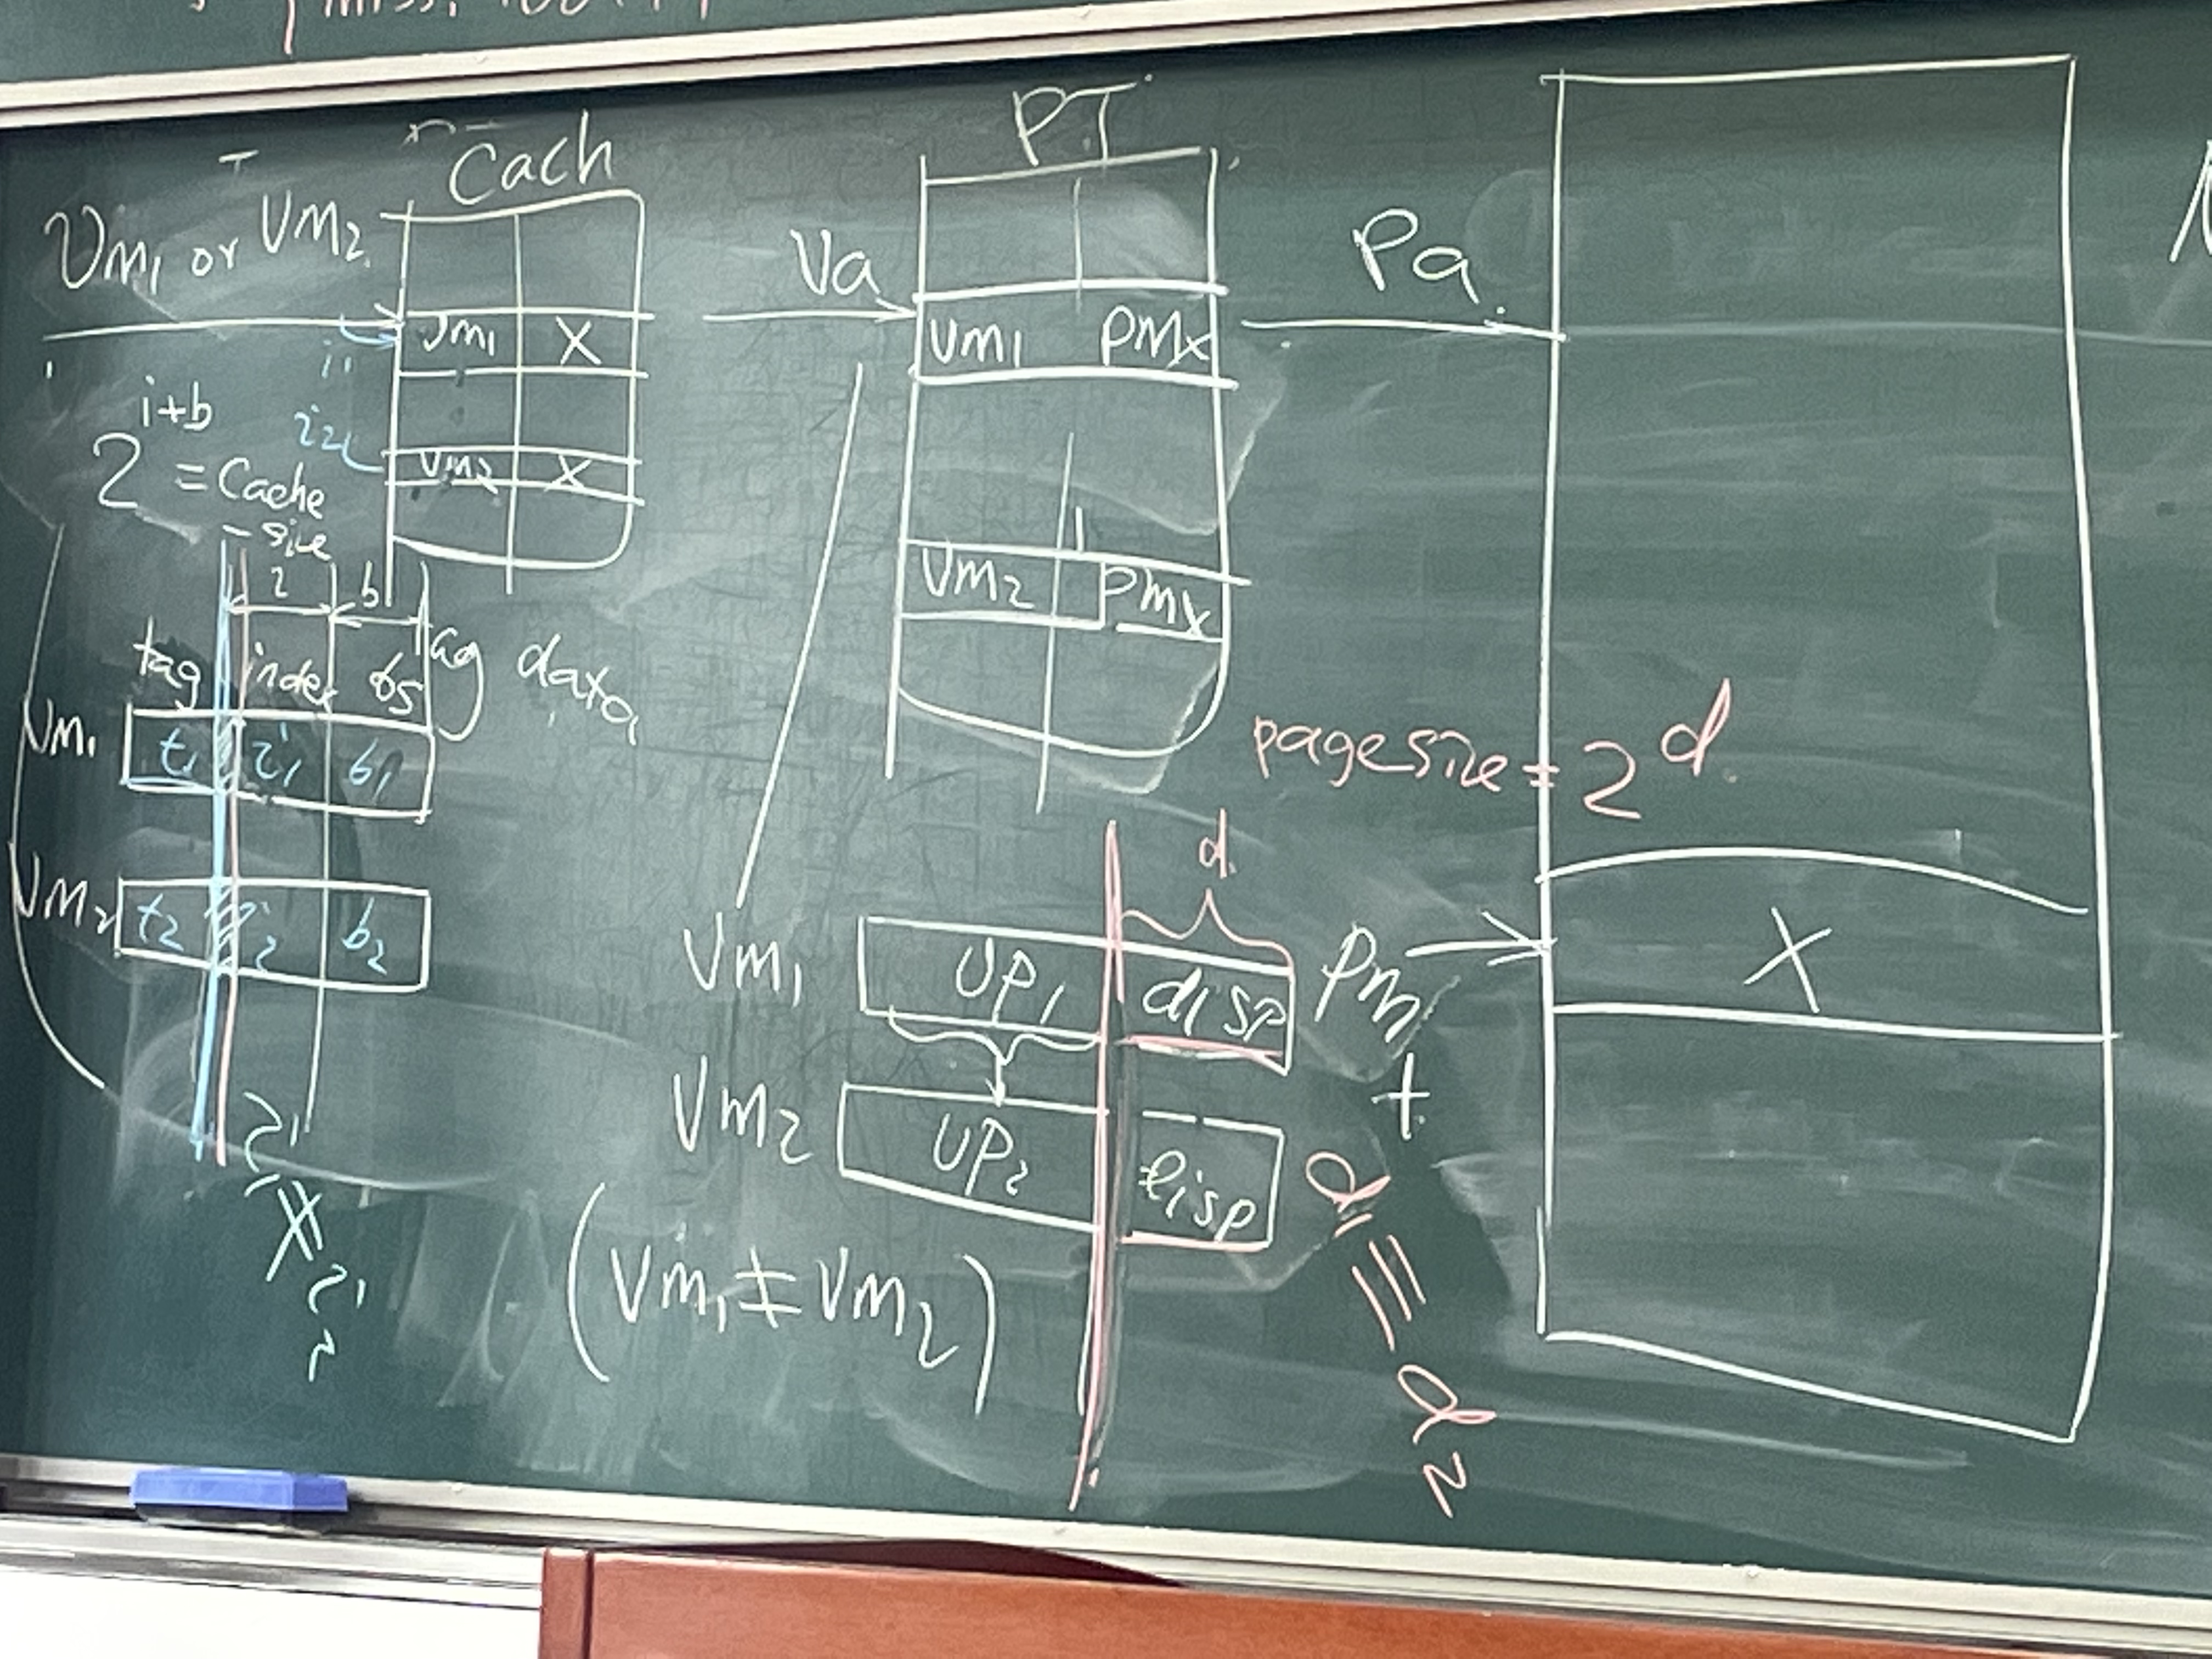 miss.
Cach
Vm1 or Vm2
i1
Vm1 X
i2
Vm2 X
2^i+b = Cache
- size
i b
tag index bs
tag data
Vm1 t1 i1 b1
Vm2 t2 i2 b2
i1
≠
i2
PT
Va
Vm1 PMx
Vm2 PMx
Pa
pagesize = 2^d
d
Vm1 VP1 disp
Vm2 VP2 disp
(Vm1 ≠ Vm2)
Pm
+
d1
≡
d2
X